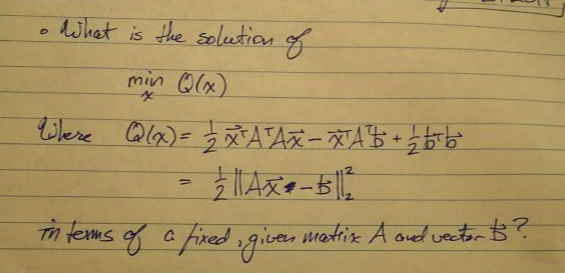 • What is the solution of
min Q(x)
x
Where Q(x) = 1/2 x⃗ᵀAᵀAx⃗ − x⃗ᵀAᵀb⃗ + 1/2 b⃗ᵀb⃗
= 1/2 ||Ax⃗ − b⃗||₂²
in terms of a fixed, given matrix A and vector b⃗?